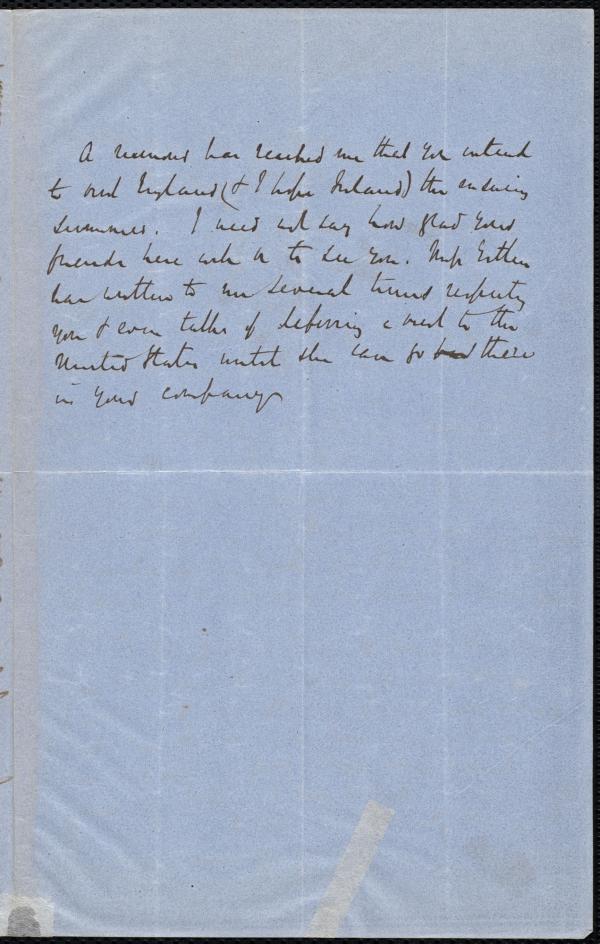 A rumour has reached me that you intend
to visit England (& I hope Ireland) the ensuing
summer. I need not say how glad your
friends here will be to see you. Miss Estlin
has written to me several times respecting
you & even talks of deferring a visit to the
United States until she can go there
in your company